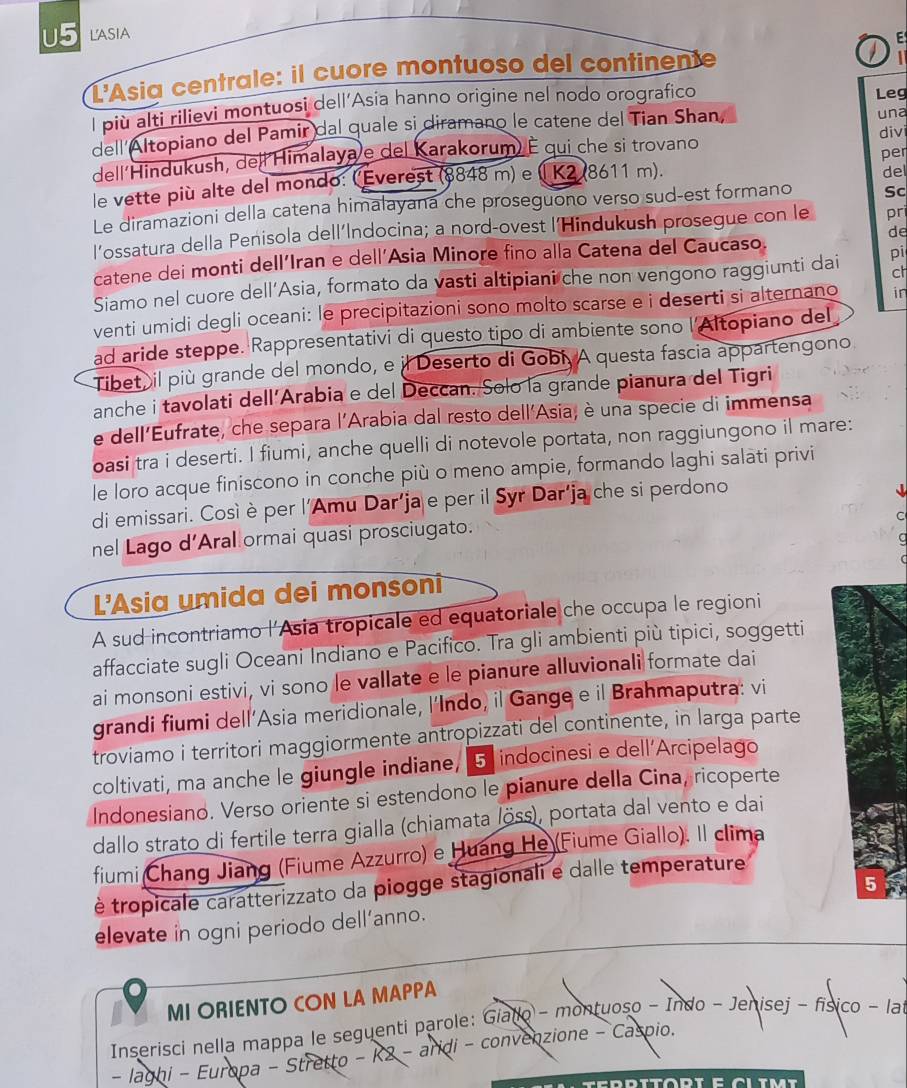 U5 L'ASIA
L'Asia centrale: il cuore montuoso del continente
I più alti rilievi montuosi dell'Asia hanno origine nel nodo orografico
dell'Altopiano del Pamir dal quale si diramano le catene del Tian Shan,
dell'Hindukush, dell'Himalaya e del Karakorum. È qui che si trovano
le vette più alte del mondo: l'Everest (8848 m) e il K2 (8611 m).
Le diramazioni della catena himalayana che proseguono verso sud-est formano
l'ossatura della Penisola dell'Indocina; a nord-ovest l'Hindukush prosegue con le
catene dei monti dell'Iran e dell'Asia Minore fino alla Catena del Caucaso.
Siamo nel cuore dell'Asia, formato da vasti altipiani che non vengono raggiunti dai
venti umidi degli oceani: le precipitazioni sono molto scarse e i deserti si alternano
ad aride steppe. Rappresentativi di questo tipo di ambiente sono l'Altopiano del
Tibet, il più grande del mondo, e il Deserto di Gobi. A questa fascia appartengono
anche i tavolati dell'Arabia e del Deccan. Solo la grande pianura del Tigri
e dell'Eufrate, che separa l'Arabia dal resto dell'Asia, è una specie di immensa
oasi tra i deserti. I fiumi, anche quelli di notevole portata, non raggiungono il mare:
le loro acque finiscono in conche più o meno ampie, formando laghi salati privi
di emissari. Così è per l'Amu Dar'ja e per il Syr Dar'ja che si perdono
nel Lago d'Aral ormai quasi prosciugato.
L'Asia umida dei monsoni
A sud incontriamo l'Asia tropicale ed equatoriale che occupa le regioni
affacciate sugli Oceani Indiano e Pacifico. Tra gli ambienti più tipici, soggetti
ai monsoni estivi, vi sono le vallate e le pianure alluvionali formate dai
grandi fiumi dell'Asia meridionale, l'Indo, il Gange e il Brahmaputra: vi
troviamo i territori maggiormente antropizzati del continente, in larga parte
coltivati, ma anche le giungle indiane, 5 indocinesi e dell'Arcipelago
Indonesiano. Verso oriente si estendono le pianure della Cina, ricoperte
dallo strato di fertile terra gialla (chiamata löss), portata dal vento e dai
fiumi Chang Jiang (Fiume Azzurro) e Huang He (Fiume Giallo). Il clima
è tropicale caratterizzato da piogge stagionali e dalle temperature
elevate in ogni periodo dell'anno.
MI ORIENTO CON LA MAPPA
Inserisci nella mappa le seguenti parole: Giallo - montuoso - Indo - Jenisej - fisico - lat
- laghi - Europa - Stretto - K2 - aridi - convenzione - Caspio.
Leg
una
divi
per
del
Sc
pri
de
pi
ch
in
5